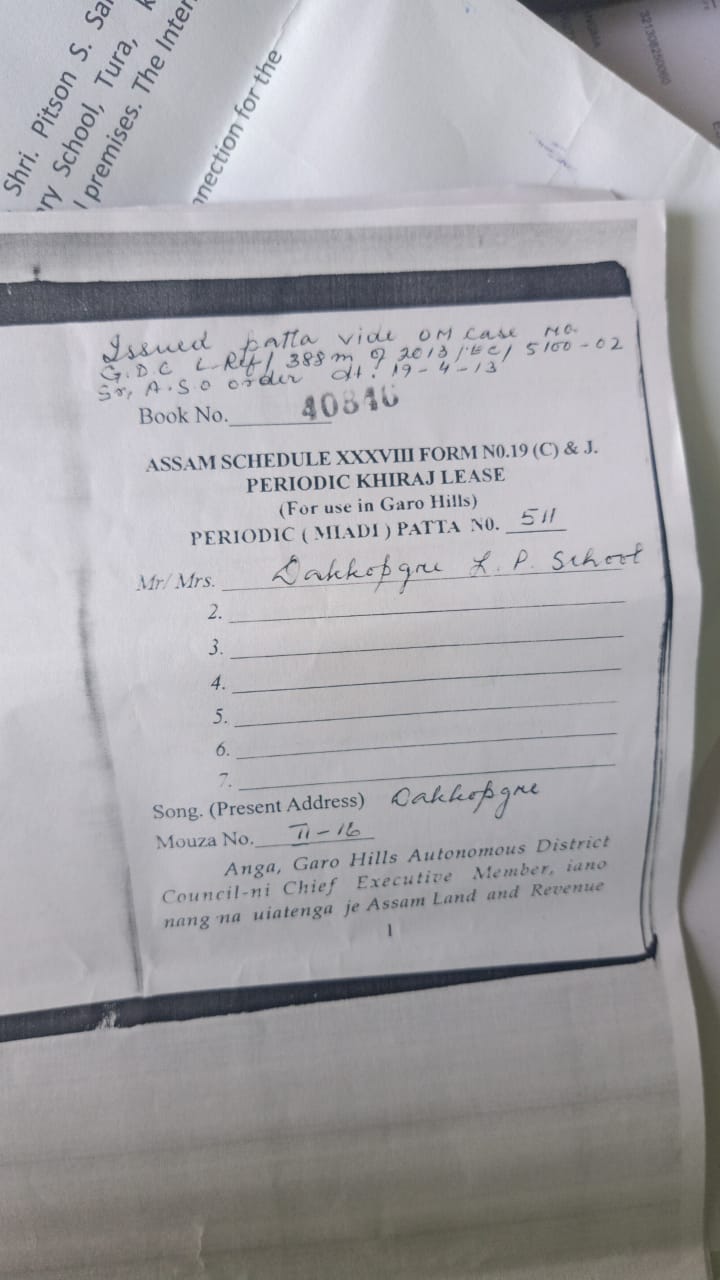 Shri. Pitson S.
ry School, Tura,
premises. The Inter
nnection for the
321308250060
Issued patta vide OM case No.
G.D.C L.Ref/ 388m of 2013/EC/ 5100-02
Sr, A.S.O order dt. 19-4-13
Book No. 40846
ASSAM SCHEDULE XXXVIII FORM N0.19 (C) & J.
PERIODIC KHIRAJ LEASE
(For use in Garo Hills)
PERIODIC ( MIADI ) PATTA N0. 511
Mr/ Mrs. Dakkopgre L. P. School
2.
3.
4.
5.
6.
7.
Song. (Present Address) Dakkopgre
Mouza No. II-16
Anga, Garo Hills Autonomous District
Council-ni Chief Executive Member, iano
nang na uiatenga je Assam Land and Revenue
1